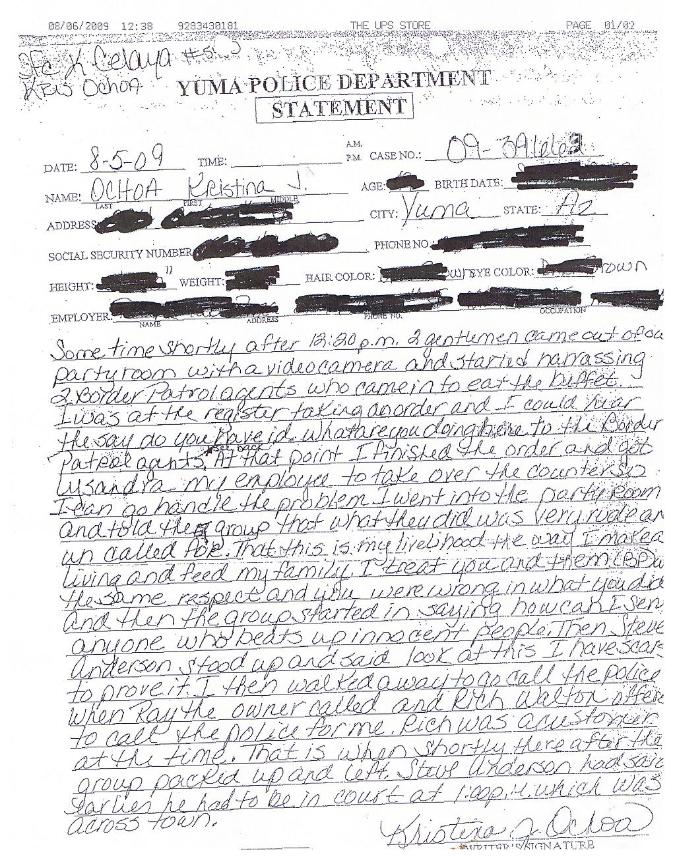 08/06/2009 12:38 9283430181 THE UPS STORE PAGE 01/02
Sfc K Celaya
Kris Ochoa
YUMA POLICE DEPARTMENT
STATEMENT
DATE: 8-5-09 TIME: A.M. P.M. CASE NO.:
NAME: OCHOA Kristina J. AGE: BIRTH DATE:
LAST FIRST MIDDLE
ADDRESS CITY: Yuma STATE: Az
SOCIAL SECURITY NUMBER PHONE NO.
HEIGHT: WEIGHT: HAIR COLOR: EYE COLOR:
EMPLOYER
NAME ADDRESS PHONE NO. OCCUPATION
Some time shortly after 12:20 p.m. 2 gentlemen came out of ou
party room with a video camera and started harrassing
2 Border Patrol agents who came in to eat the buffet.
I was at the register taking an order and I could hear
the say do you have id, what are you doing here to the Border
Patrol agents. At that point I finished the order and got
Lysandra my employee to take over the counter so
I can go handle the problem I went into the party room
and told the group that what they did was very rude an
un called for. That this is my livelihood the way I make a
living and feed my family. I treat you and them (BP)
the same respect and you were wrong in what you did
And then the group started in saying how can I ser
anyone who beats up innocent people. Then Steve
Anderson stood up and said look at this I have scars
to prove it. I then walked away to go call the police
when Ray the owner called and Rich Walton offere
to call the police for me. Rich was a customer
at the time. That is when shortly there after the
group packed up and left. Steve Anderson had said
earlier he had to be in court at 1:00p.m. which was
across town.
Kristina J. Ochoa
WRITER'S SIGNATURE